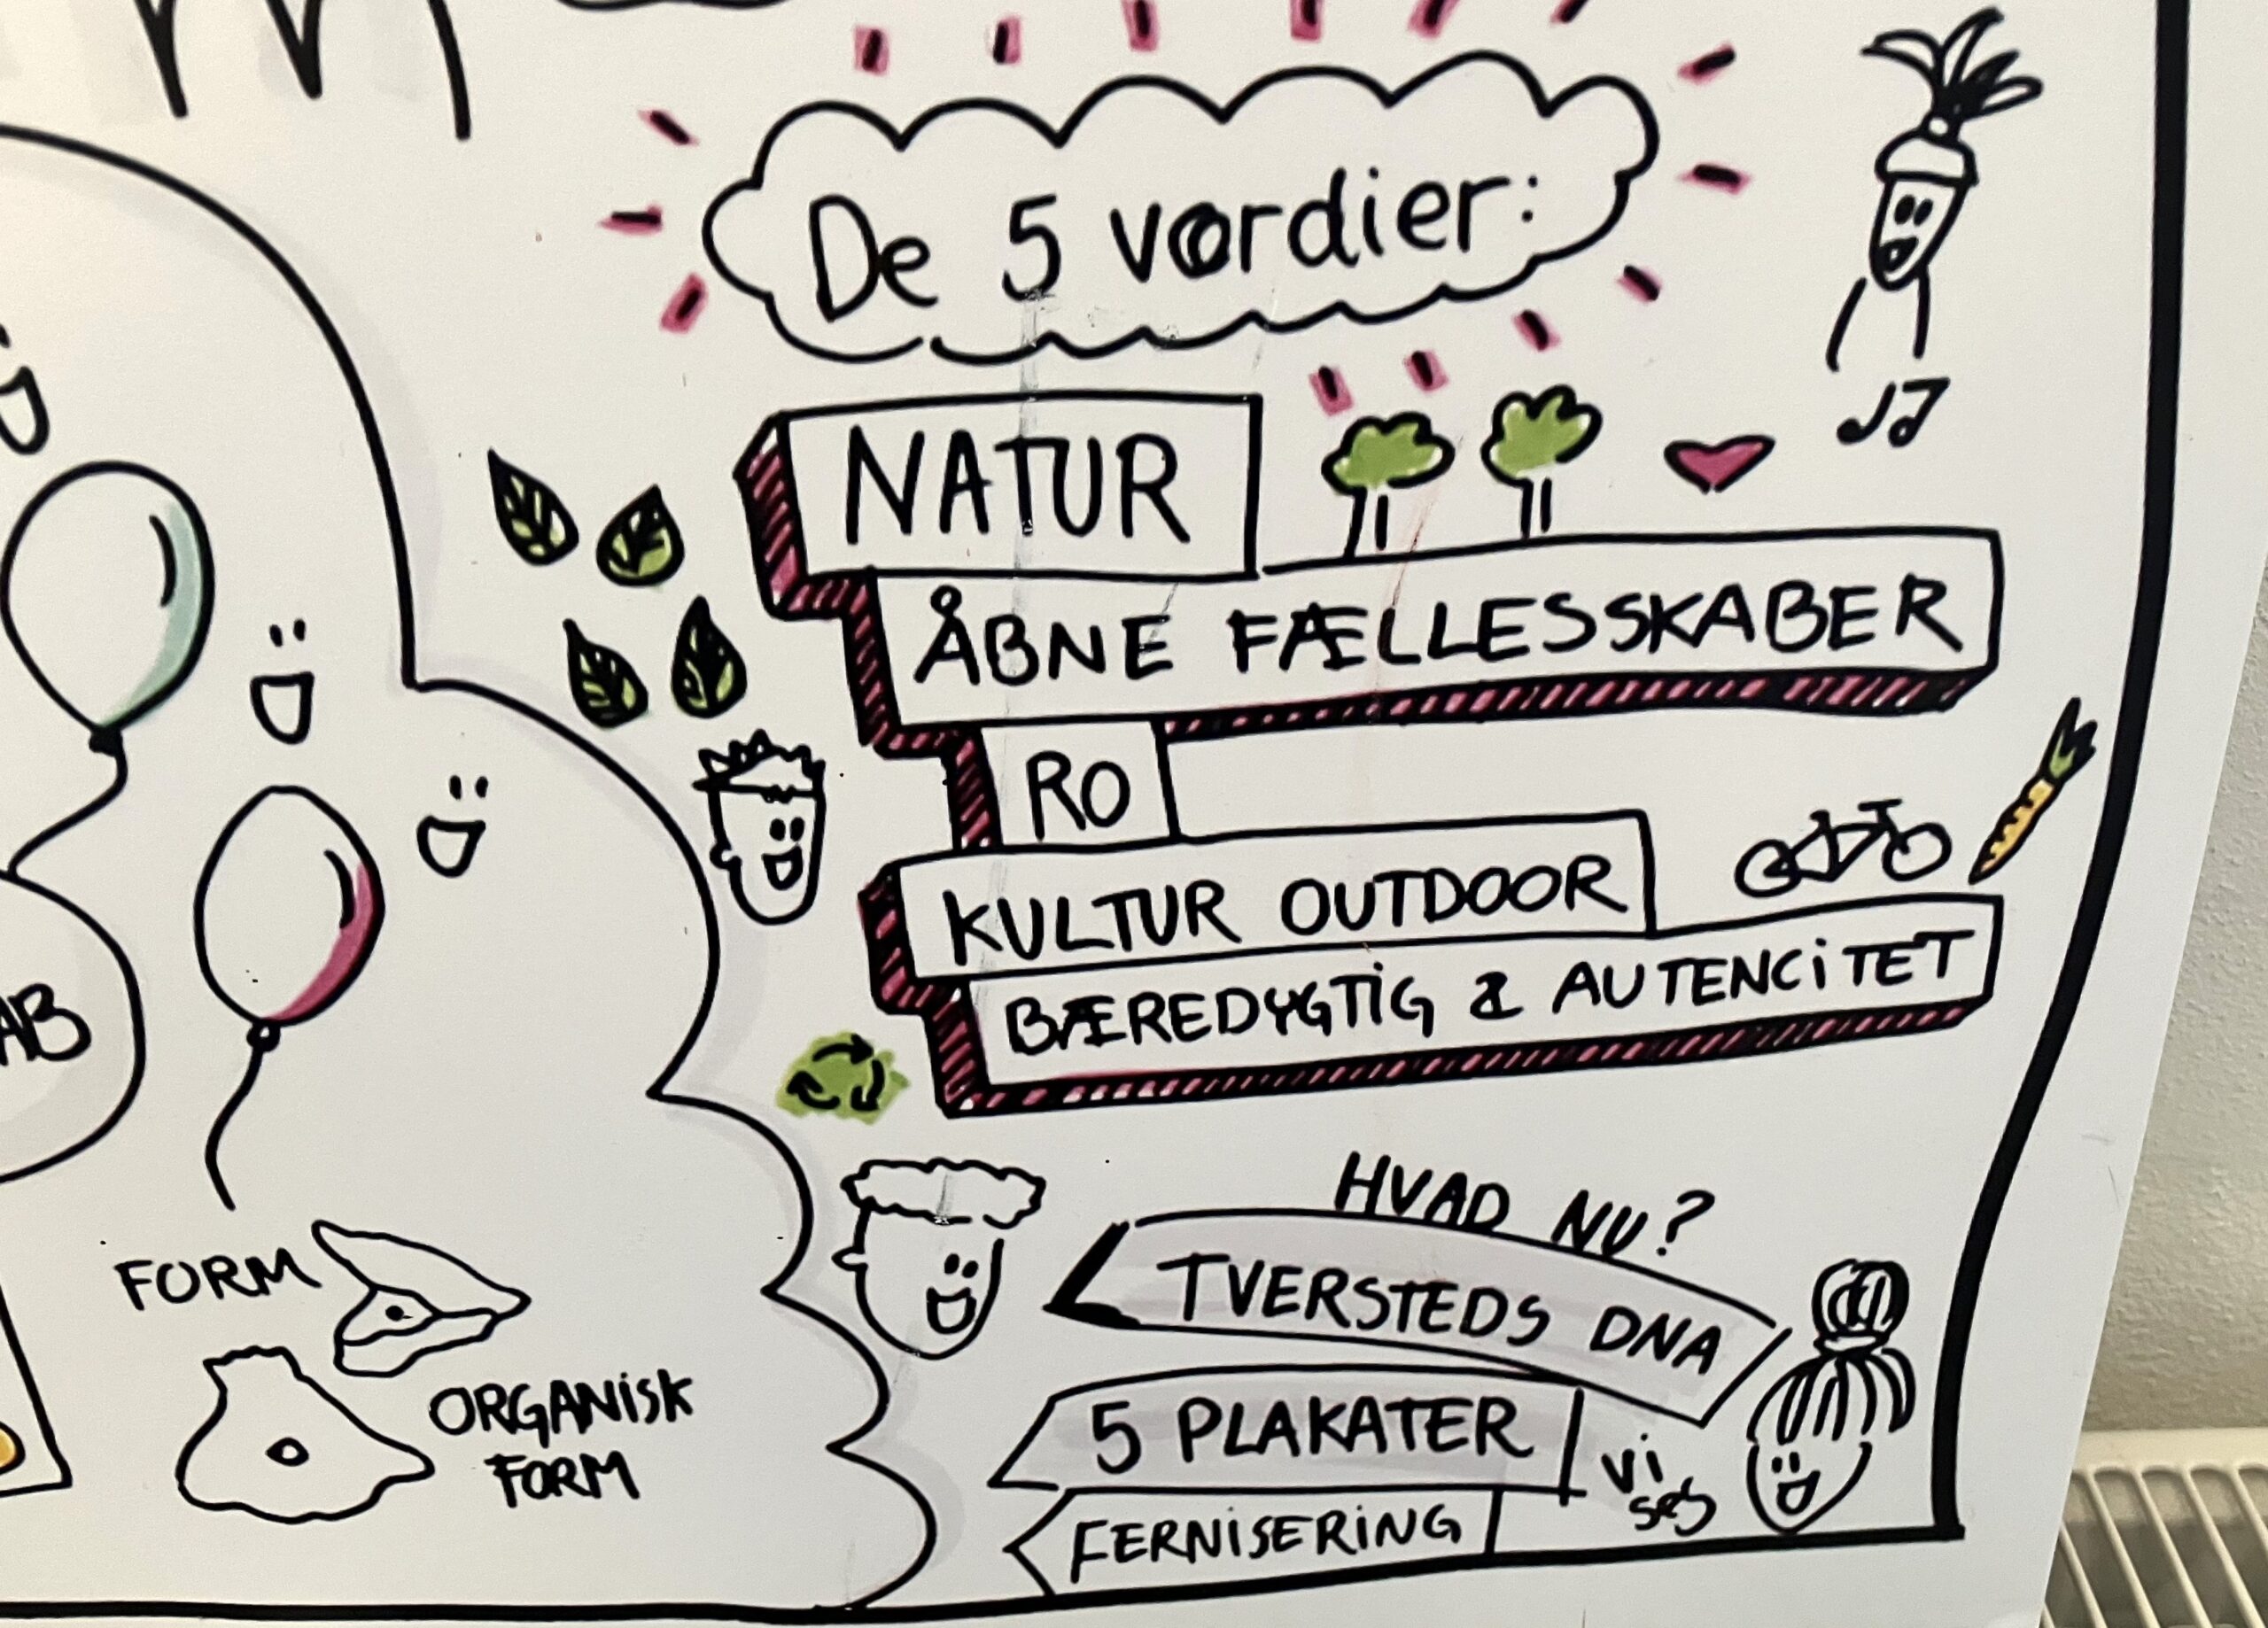 De 5 værdier:
NATUR
ÅBNE FÆLLESSKABER
RO
KULTUR OUTDOOR
BÆREDYGTIG & AUTENCITET
HVAD NU?
TVERSTEDS DNA
5 PLAKATER
FERNISERING
Vi
ses
FORM
ORGANISK
FORM